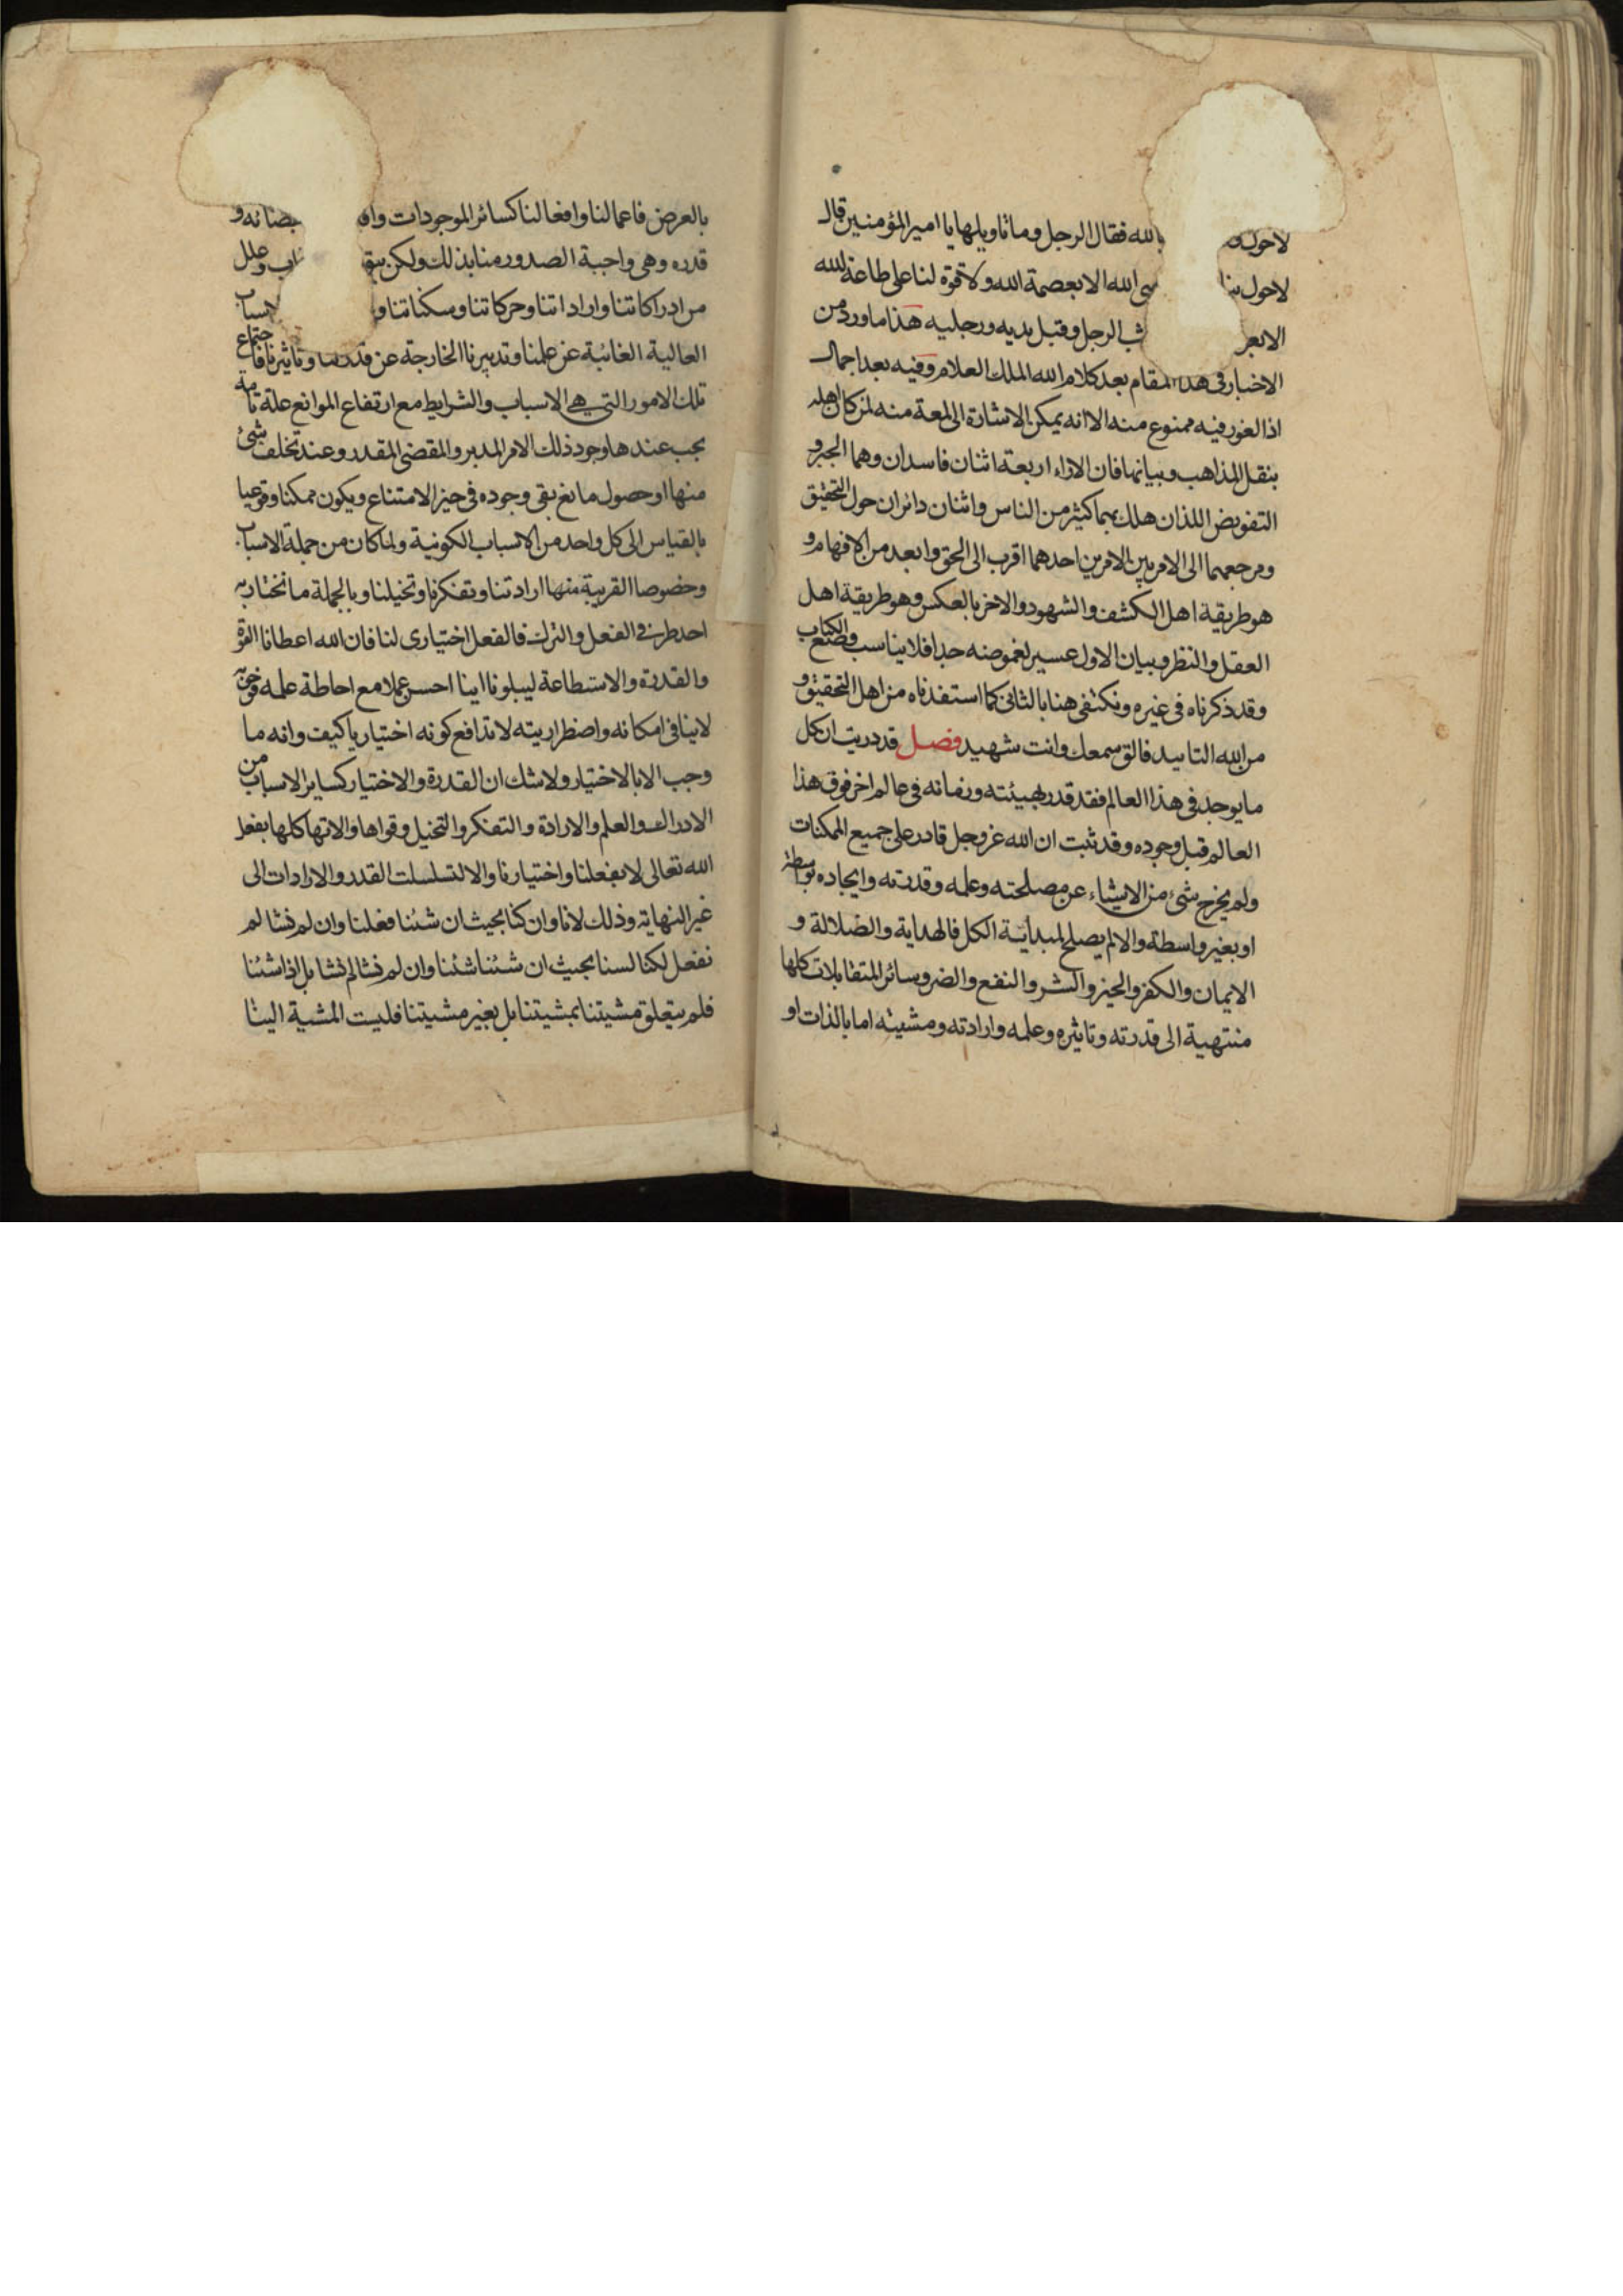 لاحول و بالله فقال الرجل وما تاويلها يا امير المؤمنين قال
لاحول بنا الله الا بعصمة الله ولا قوة لنا على طاعة الله
الا بعو الرجل وقبل يديه ورجليه هذا ما ورد من
الاخبار فى هذا المقام بعد كلام الله الملك العلام وفيه بعد اجمال
اذا لغور فيه ممنوع منه الا انه يمكن الاشارة الى لمعة منه لمن كان اهله
بنقل المذاهب وبيانها فان الاراء اربعة اثنان فاسدان وهما الجبر و
التفويض اللذان هلك بهما كثير من الناس واثنان دائران حول التحقيق
ومرجعهما الى الامر بين الامرين احدهما اقرب الى الحق وابعد من الافهام و
هو طريقة اهل الكشف والشهود والاخر بالعكس وهو طريقة اهل
العقل والنظر وبيان الاول عسير لغموضه جدا فلا يناسب وضع الكتاب
وقد ذكرناه فى غيره ونكتفى هنا بالثانى كما استفدناه من اهل التحقيق و
من الله التاييد فالق سمعك وانت شهيد فصل قد دريت ان كل
ما يوجد فى هذا العالم فقد قدر بهيئته وزمانه فى عالم اخر فوق هذا
العالم قبل وجوده وقد ثبت ان الله عز وجل قادر على جميع الممكنات
ولم يخرج شىء من الاشياء عن مصلحته وعلمه وقدرته وايجاده بواسطة
او بغير واسطة والا لم يصلح لمبدائية الكل فالهداية والضلالة و
الايمان والكفر والخير والشر والنفع والضر وسائر المتقابلات كلها
منتهية الى قدرته وتاثيره وعلمه وارادته ومشيته اما بالذات او
بالعرض فاعمالنا وافعالنا كسائر الموجودات واف بقضائه و
قدره وهى واجبة الصدور منا بذلك ولكن بتو اب وعلل
من ادراكاتنا واراداتنا وحركاتنا وسكناتنا و لاسباب
العالية الغائبة عن علمنا وتدبيرنا الخارجة عن قدرتنا وتاثيرنا فاجتماع
تلك الامور التى هى الاسباب والشرايط مع ارتفاع الموانع علة تامة
يجب عندها وجود ذلك الامر المدبر والمقضى المقدر وعند تخلف شىء
منها او حصول مانع بقى وجوده فى حيز الامتناع ويكون ممكنا وقوعيا
بالقياس الى كل واحد من الاسباب الكونية ولما كان من جملة الاسباب
وخصوصا القريبة منها ارادتنا وتفكرنا وتخيلنا وبالجملة ما نختار به
احد طرفى الفعل والترك فالفعل اختيارى لنا فان الله اعطانا القوة
والقدرة والاستطاعة ليبلونا اينا احسن عملا مع احاطة علمه فوجوبه
لا ينافى امكانه واضطراريته لا تدافع كونه اختياريا كيف وانه ما
وجب الا بالاختيار ولا شك ان القدرة والاختيار كساير الاسباب من
الادراك والعلم والارادة والتفكر والتخيل وقواها والاتها كلها بفعل
الله تعالى لا بفعلنا واختيارنا والا لتسلسلت القدر والارادات الى
غير النهاية وذلك لانا وان كنا بحيث ان شئنا فعلنا وان لم نشا لم
نفعل لكنا لسنا بحيث ان شئنا شئنا وان لم نشا لم نشا بل اذا شئنا
فلم يتعلق مشيتنا بمشيتنا بل بغير مشيتنا فليست المشية الينا